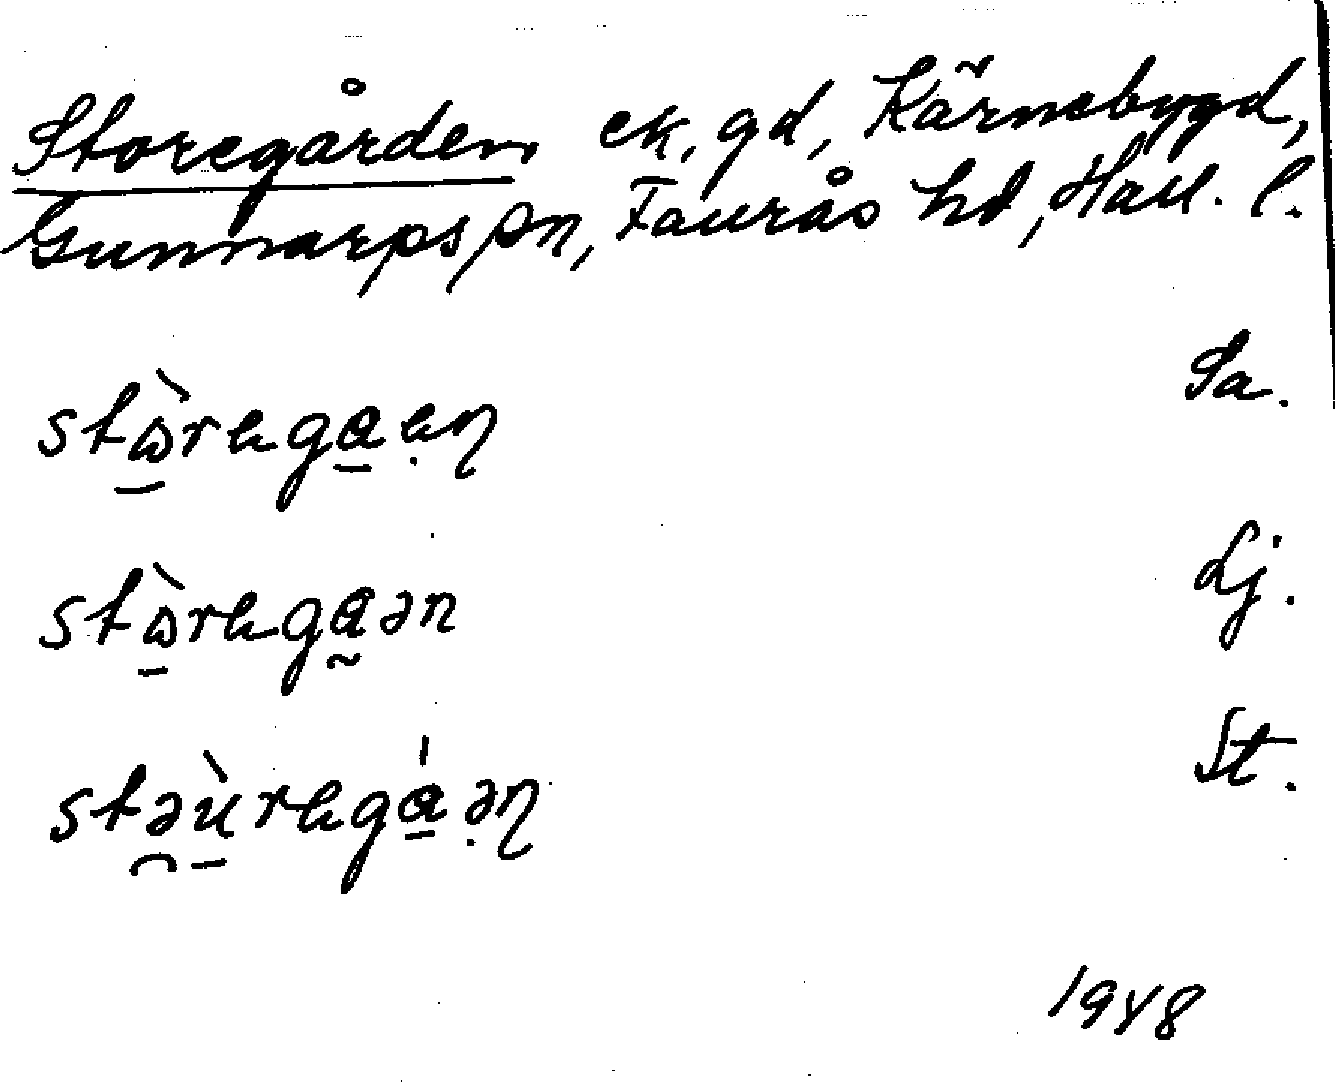 Storegården ek. gd, Kärnebygd,
Gunnarps sn, Faurås hd, Hall. l.
stὼ̠rega̠ẹn̩ Sa.
stὼ̠rega̰ən Lj.
stə̯ù̠regá̠ə̣n̩ St.
1948